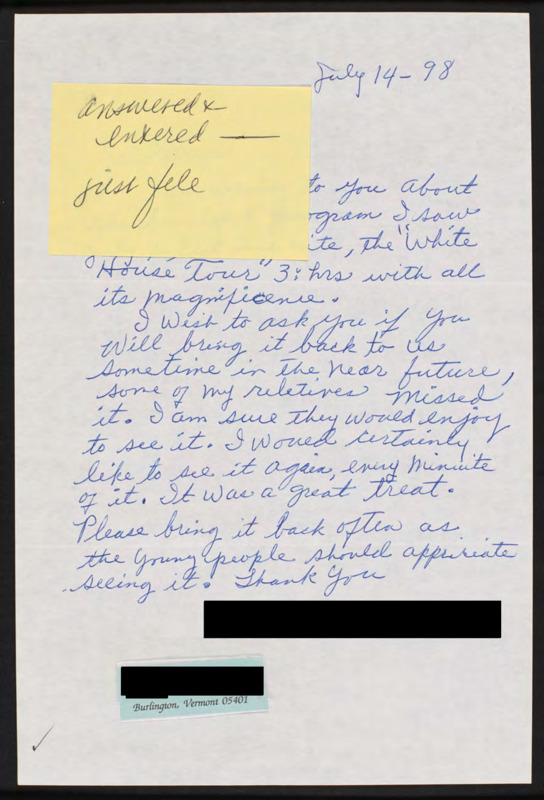 July 14-98
answered &
entered —
just file
to you about
ogram I saw
te, the "White
"House Tour" 3: hrs with all
its magnificence.
I Wish to ask you if you
Will bring it back to us
sometime in the near future,
some of my reletives missed
it. I am sure they would enjoy
to see it. I would certainly
like to see it again, every minuite
of it. It was a great treat.
Please bring it back often as
the young people should appriciate
seeing it. Thank You
Burlington, Vermont 05401